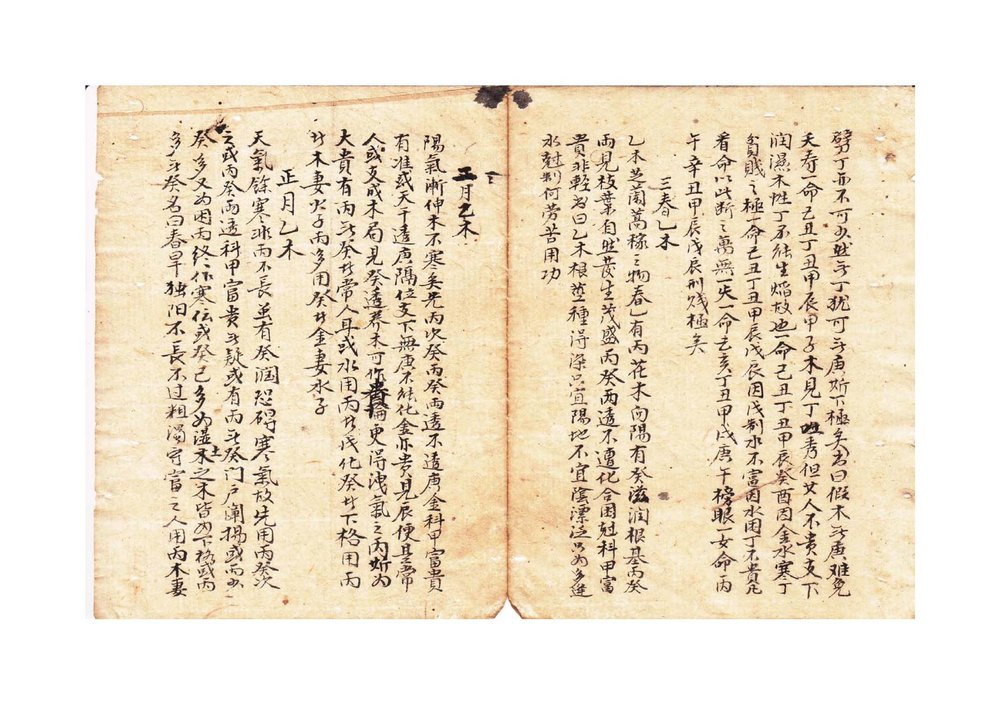 劈丁亦不可少然無丁犹可無庚斯下極矣書曰假木無庚难免
夭寿一命己丑丁丑甲辰甲子木見丁 秀但女人不貴支下
润濕木性丁不能生焰故也一命己丑丁丑甲辰癸酉因金水寒丁
貧賎之極一命己丑丁丑甲辰戊辰因戊制水不富因水困丁不貴凡
看命以此断之萬無一失一命乙亥丁丑甲戌庚午榜眼一女命丙
午辛丑甲辰戊辰刑賎極矣
三春乙木
乙木芝蘭蒿稼之物春乙有丙花木向陽有癸滋润根基丙癸
両見枝葉自然長生茂盛丙癸两透不遭化合困尅科甲富
貴非軽書曰乙木根荄種得深只宜陽地不宜陰漂泛只為多逢
水尅制何劳苦用功
二月乙木
陽氣漸伸木不寒矣先丙次癸丙癸両透不透庚金科甲富貴
有准或天干透庚隔位支下無庚不能化金亦貴見辰便是常
人或支成木局見癸透养木可作貴论更得洩氣之丙斯为
大貴有丙無癸者常人耳或水用丙者戊化癸者下格用丙
者木妻火子丙多用癸者金妻水子
正月乙木
天氣餘寒非丙不長虽有癸润恐碍寒氣故先用丙癸次
之或丙癸両透科甲富貴無疑或有丙無癸门户闡揚或丙少
癸多又为困丙終作寒伝或癸己多为湿土之木皆为下格或丙
多無癸名曰春旱独阳不長不过粗濁守富之人用丙木妻